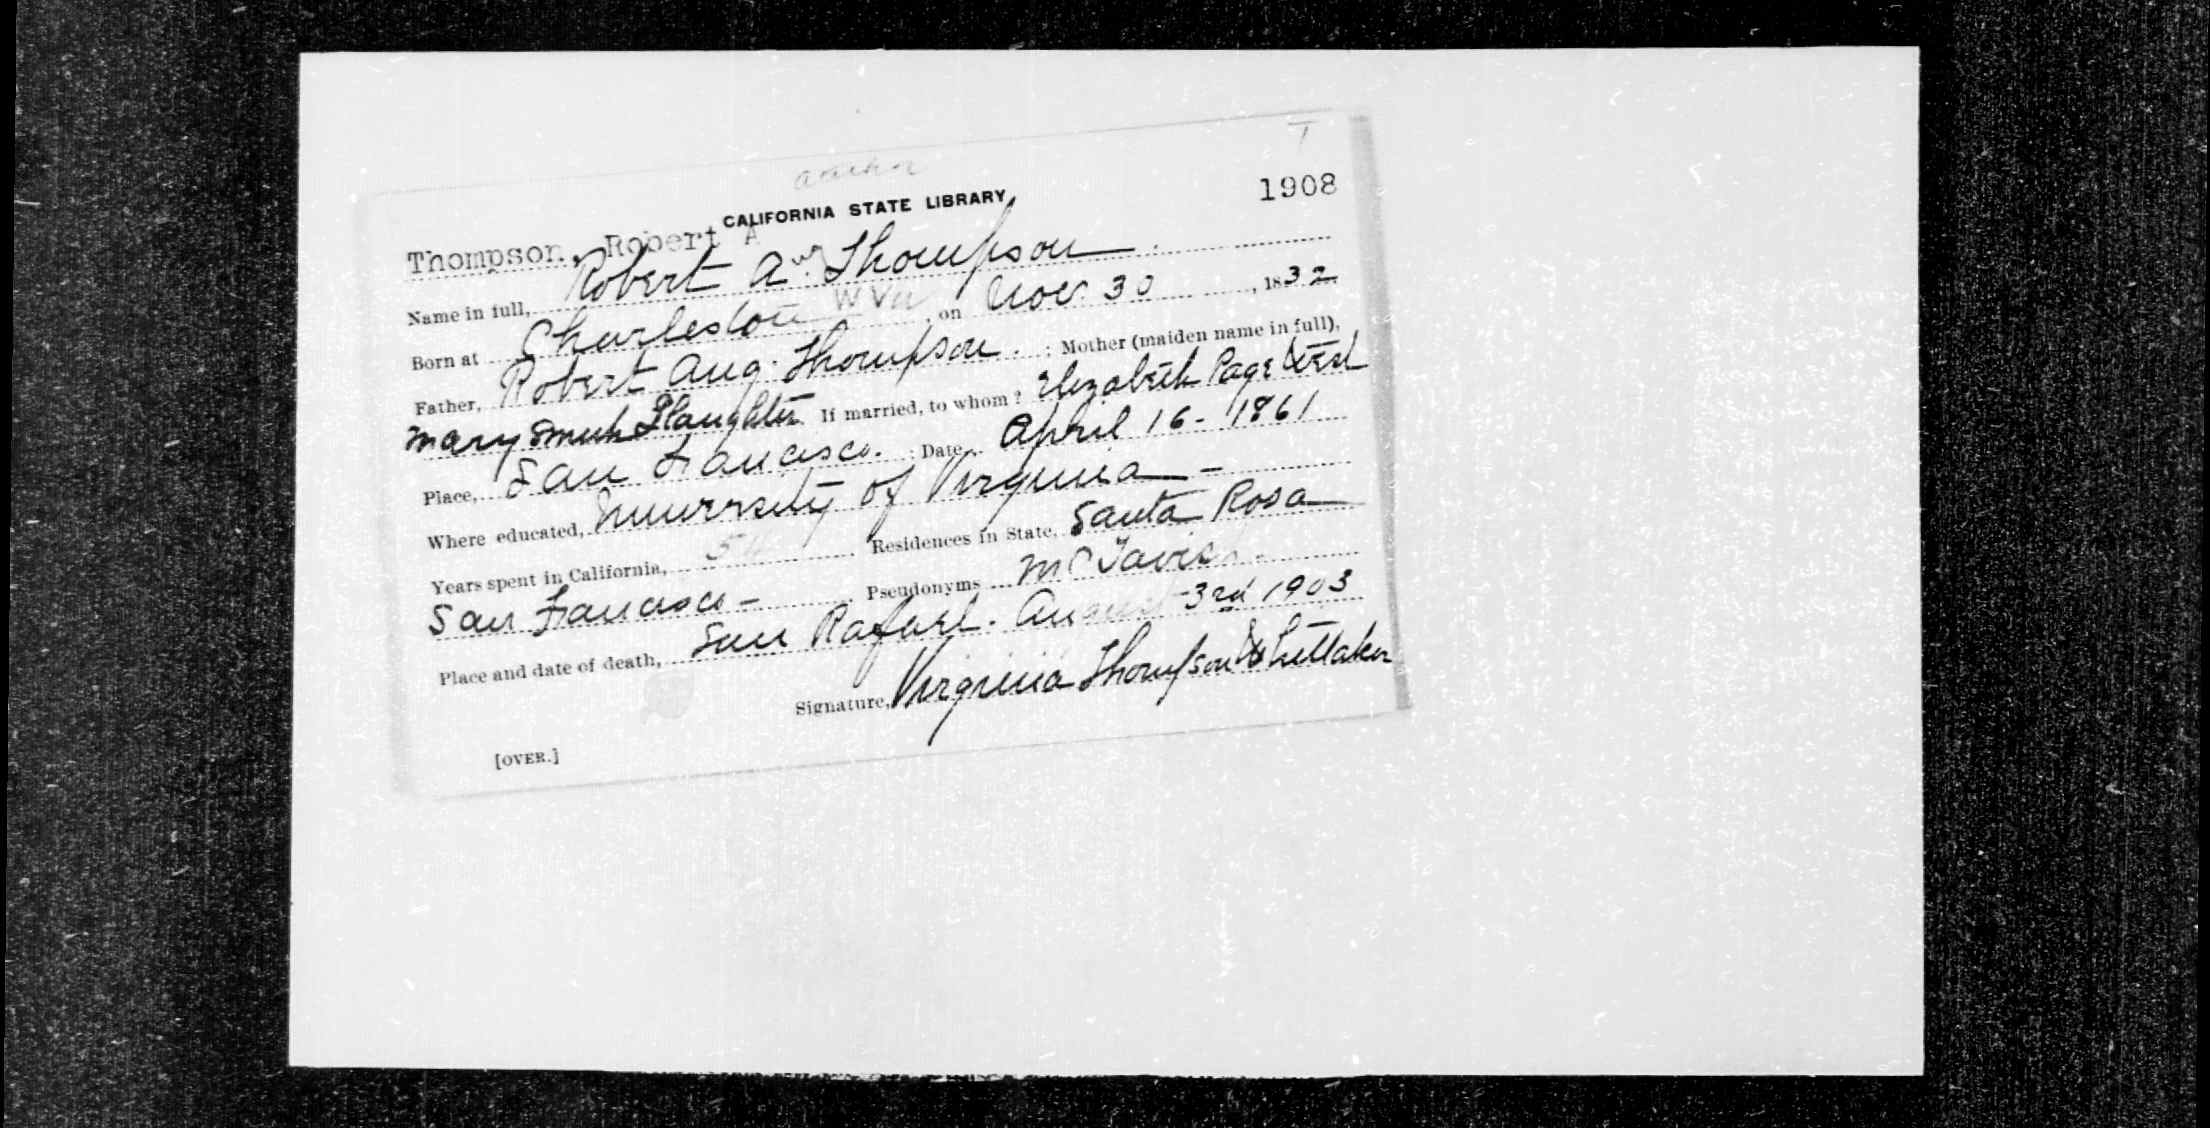 T
author
CALIFORNIA STATE LIBRARY
1908
Thompson, Robert A
Name in full, Robert Aug. Thompson
Born at Charleston W Va, on Nov. 30, 1832
Father, Robert Aug. Thompson. ; Mother (maiden name in full),
Mary Smith Slaughter If married, to whom? Elizabeth Page West
Place, San Francisco. ; Date, April 16 - 1861
Where educated, University of Virginia -
Years spent in California, Residences in State, Santa Rosa
San Francisco - Pseudonyms McTavish
Place and date of death, San Rafael. August 3rd 1903
Signature, Virginia Thompson Whittaker
[OVER.]